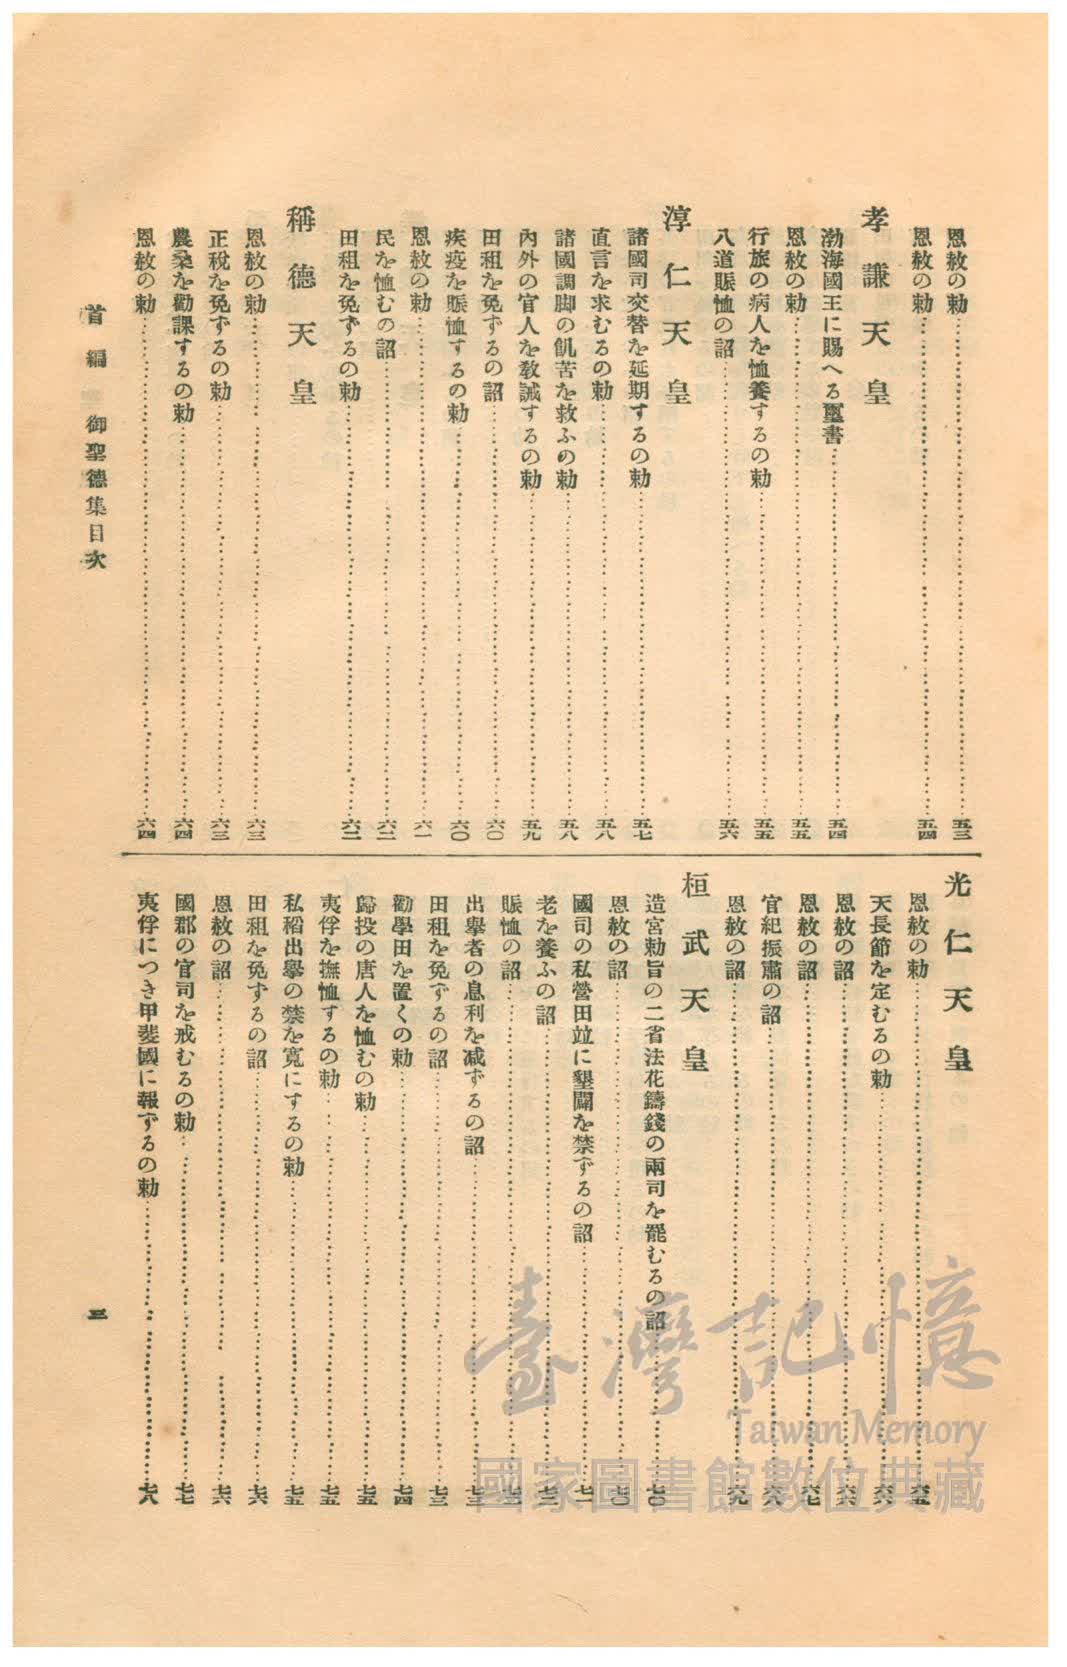 恩赦の勅……五三
恩赦の勅……五四
孝謙天皇
渤海國王に賜へる璽書……五四
恩赦の勅……五五
行旅の病人を恤養するの勅……五五
八道賑恤の詔……五六
淳仁天皇
諸國司交替を延期するの勅……五七
直言を求むるの勅……五八
諸國調脚の飢苦を救ふの勅……五八
內外の官人を敎誡するの勅……五九
田租を免ずるの詔……六〇
疾疫を賑恤するの勅……六〇
恩赦の勅……六一
民を恤むの詔……六二
田租を免ずるの勅……六二
稱德天皇
恩赦の勅……六三
正稅を免ずるの勅……六三
農桑を勸課するの勅……六四
恩赦の勅……六四
光仁天皇
恩赦の勅……六五
天長節を定むるの勅……六六
恩赦の詔……六六
恩赦の詔……六七
官紀振肅の詔……六八
恩赦の詔……六九
桓武天皇
造宮勅旨の二省法花鑄錢の兩司を罷むるの詔……七〇
恩赦の詔……七〇
國司の私營田竝に墾闢を禁ずるの詔……七一
老を養ふの詔……七二
賑恤の詔……七二
出擧者の息利を減ずるの詔……七三
田租を免ずるの詔……七三
勸學田を置くの勅……七四
歸投の唐人を恤むの勅……七五
夷俘を撫恤するの勅……七五
私稻出擧の禁を寬にするの勅……七五
田租を免ずるの詔……七六
恩赦の詔……七六
國郡の官司を戒むるの勅……七七
夷俘につき甲斐國に報ずるの勅……七八
首編 御聖德集目次
三
臺灣記憶
Taiwan Memory
國家圖書館數位典藏